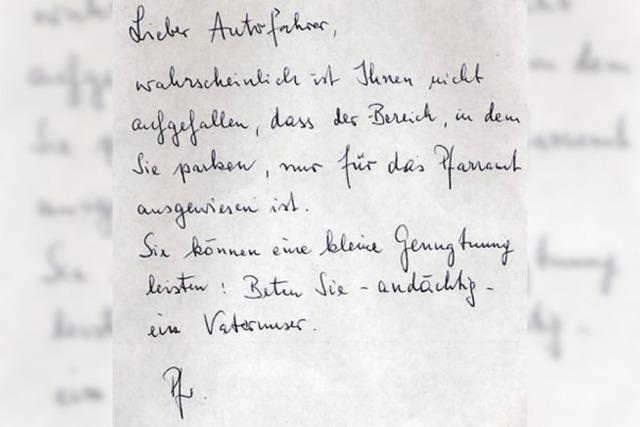 Lieber Autofahrer,
wahrscheinlich ist Ihnen nicht
aufgefallen, dass der Bereich, in dem
Sie parken, nur für das Pfarramt
ausgewiesen ist.
Sie können eine kleine Genugtuung
leisten: Beten Sie - andächtig -
ein Vaterunser.
Pfr.